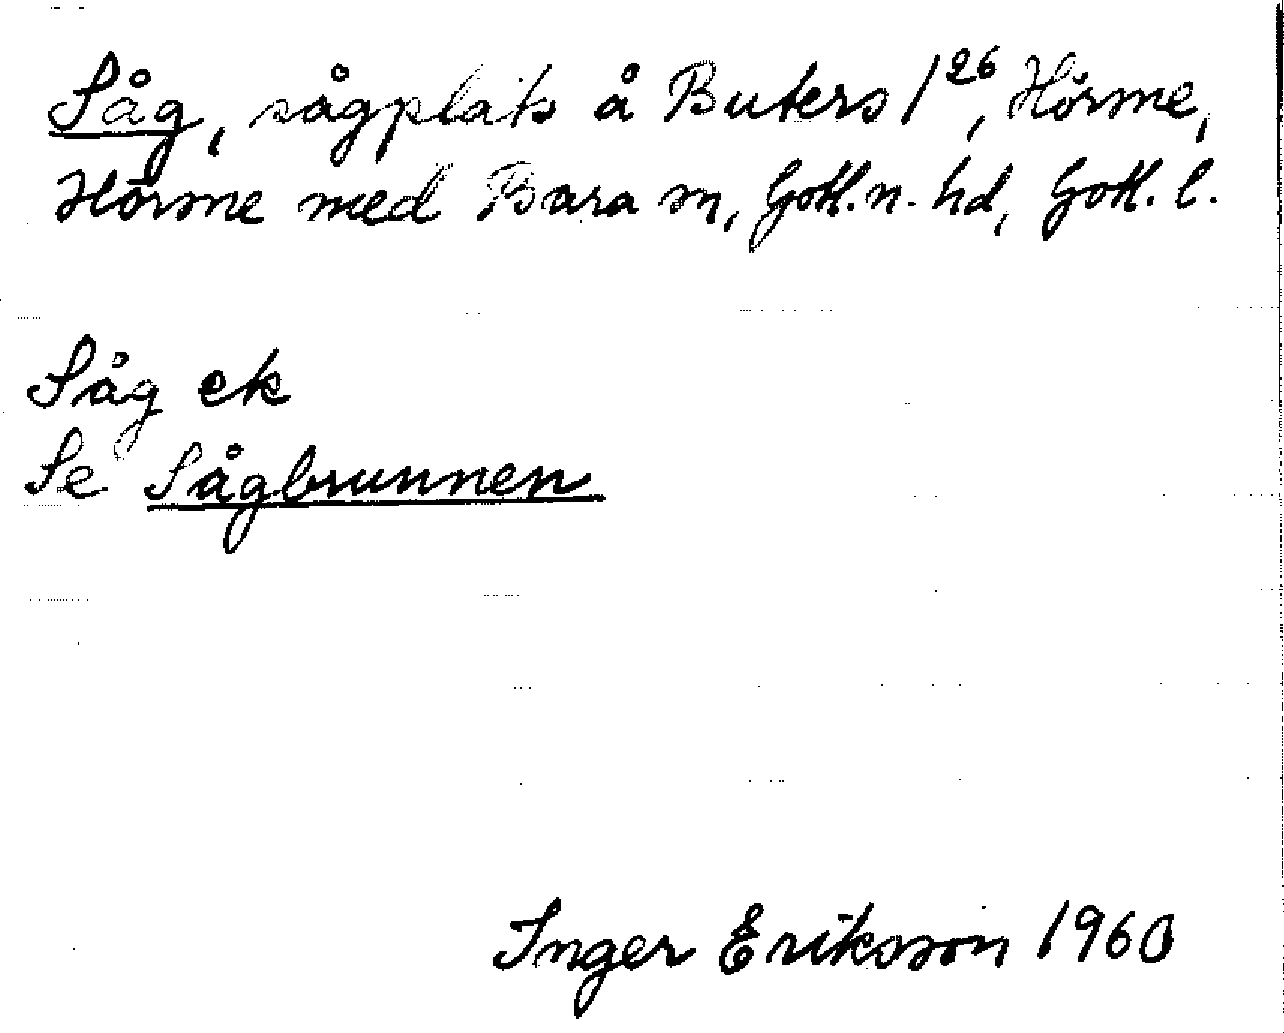 Såg, sågplats å Buters 1²⁶, Hörsne,
Hörsne med Bara sn, Gotl. n. hd, Gotl. l.
Såg ek
Se Sågbrunnen
Inger Eriksson 1960